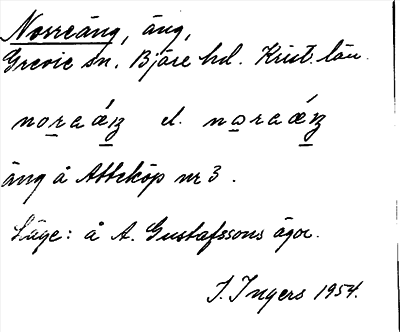 Norreäng, äng,
Grevie sn. Bjäre hd. Krist. län.
noraǽŋ el. nꙍraǽŋ
äng å Atteköp nr 3.
Läge: å A. Gustafssons ägor.
I. Ingers 1954.